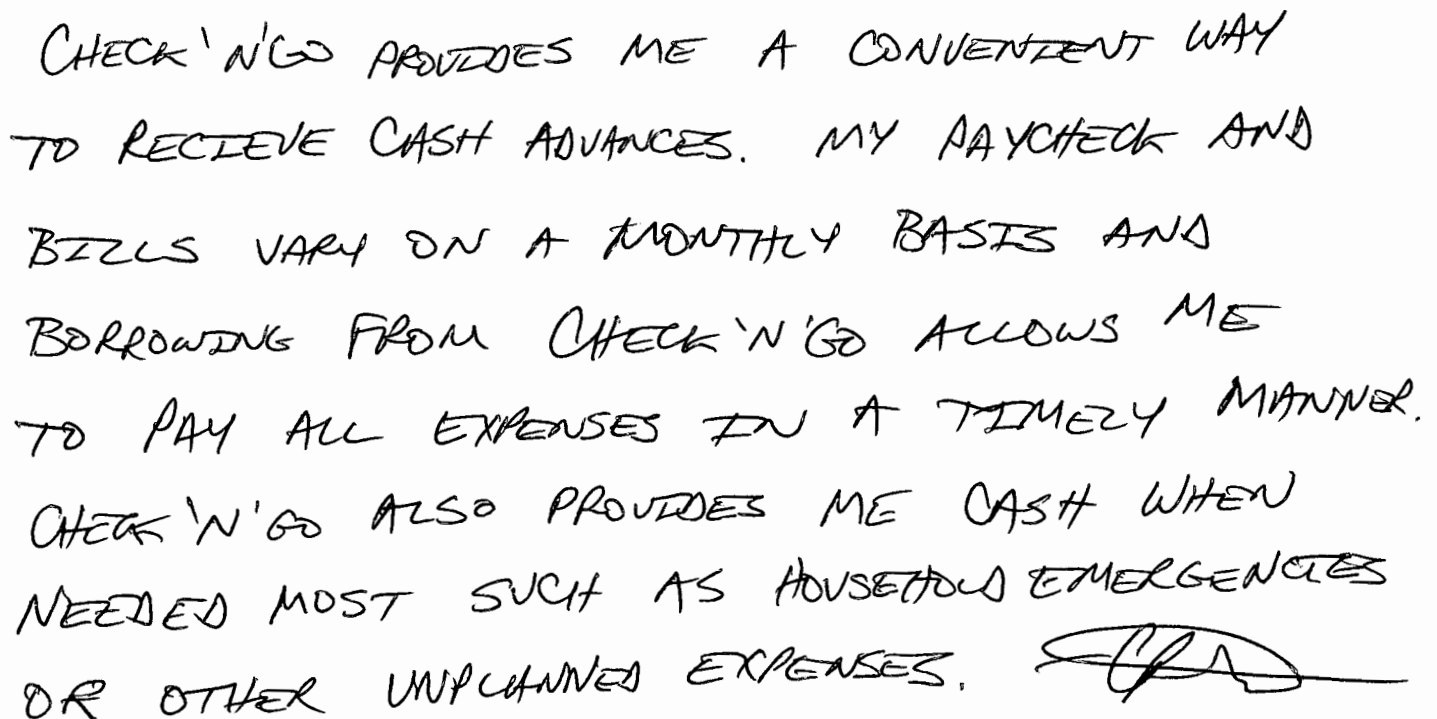 CHECK 'N' GO PROVIDES ME A CONVENIENT WAY
TO RECIEVE CASH ADVANCES. MY PAYCHECK AND
BILLS VARY ON A MONTHLY BASIS AND
BORROWING FROM CHECK 'N' GO ALLOWS ME
TO PAY ALL EXPENSES IN A TIMELY MANNER.
CHECK 'N' GO ALSO PROVIDES ME CASH WHEN
NEEDED MOST SUCH AS HOUSEHOLD EMERGENCIES
OR OTHER UNPLANNED EXPENSES.